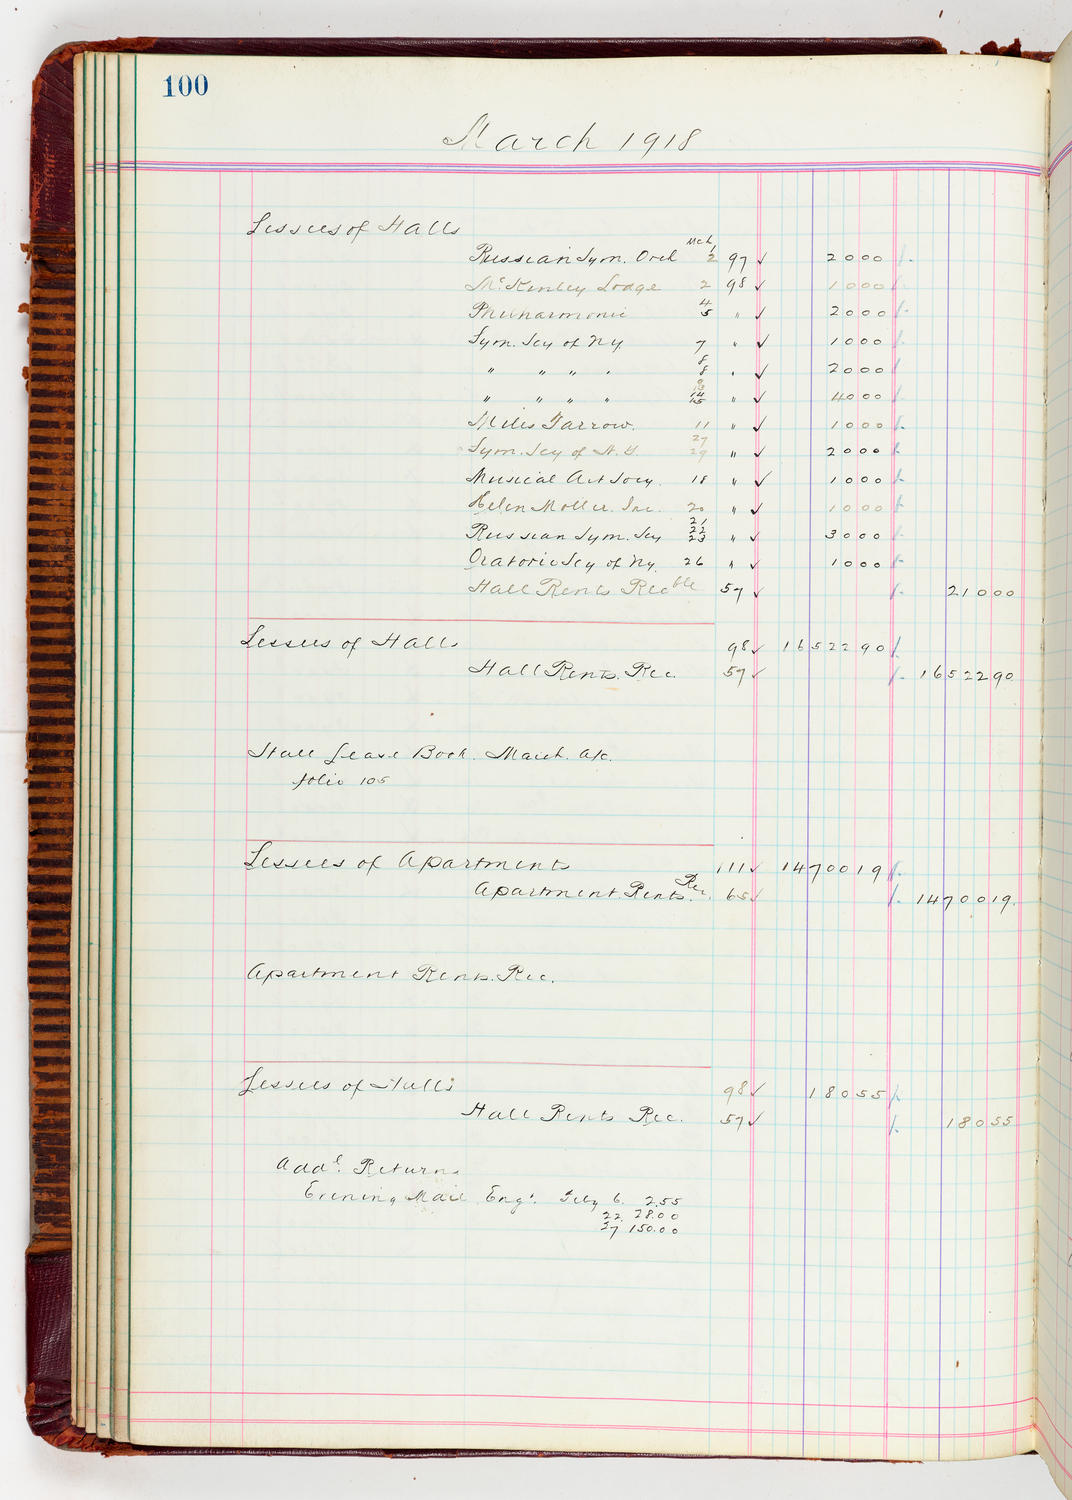 100
March 1918
Lessees of Halls
Mch
Russian Sym. Orch 1 2 97 ✓ 2000
McKinley Lodge 2 98 ✓ 1000
Philharmonic 4 5 " ✓ 2000
Sym. Scy of Ny 7 " ✓ 1000
" " " " 8 8 " ✓ 2000
" " " " 9 13 14 15 " ✓ 4000
Miles Farrow. 11 " ✓ 1000
Sym. Scy of N.Y. 27 29 " ✓ 2000
Musical Art Socy. 18 " ✓ 1000
Helen Moller. Inc. 20 " ✓ 1000
Russian Sym. Scy 21 22 23 " ✓ 3000
Oratorio Scy of Ny. 26 " ✓ 1000
Hall Rents Recble 57 ✓ 21000
Lessees of Halls 98 ✓ 1652290
Hall Rents. Rec. 57 ✓ 1652290
Hall Lease Book. March. a/c.
folio 105
Lessees of Apartments 111 ✓ 1470019
Apartment Rents. Rec. 65 ✓ 1470019.
Apartment Rents. Rec.
Lessees of Halls 98 ✓ 18055
Hall Rents Rec. 57 ✓ 18055
Addl. Returns
Evening Mail Engs. Feby 6. 2.55
22 28.00
27 150.00